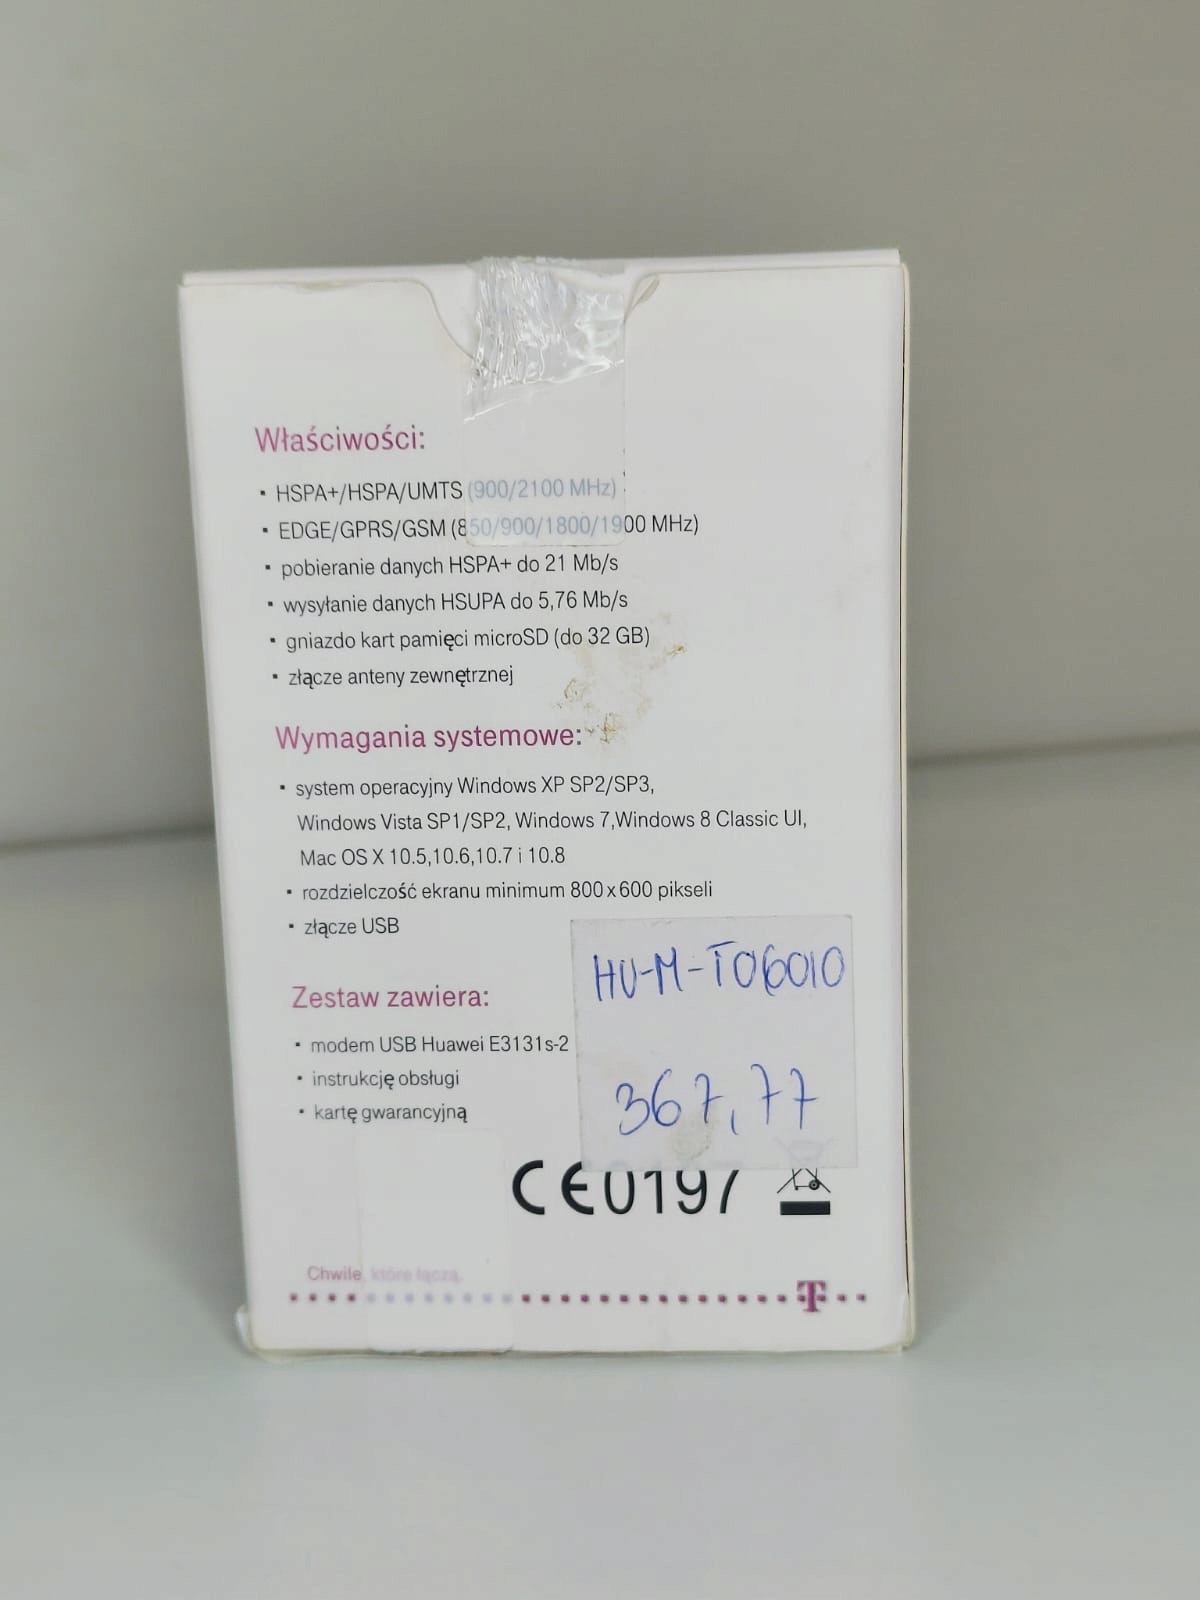 Właściwości:
• HSPA+/HSPA/UMTS (900/2100 MHz)
• EDGE/GPRS/GSM (850/900/1800/1900 MHz)
• pobieranie danych HSPA+ do 21 Mb/s
• wysyłanie danych HSUPA do 5,76 Mb/s
• gniazdo kart pamięci microSD (do 32 GB)
• złącze anteny zewnętrznej
Wymagania systemowe:
• system operacyjny Windows XP SP2/SP3,
Windows Vista SP1/SP2, Windows 7,Windows 8 Classic UI,
Mac OS X 10.5,10.6,10.7 i 10.8
• rozdzielczość ekranu minimum 800x600 pikseli
• złącze USB
Zestaw zawiera:
• modem USB Huawei E3131s-2
• instrukcję obsługi
• kartę gwarancyjną
HU-M-T06010
367,77
CE0197
Chwile, które łączą.
T